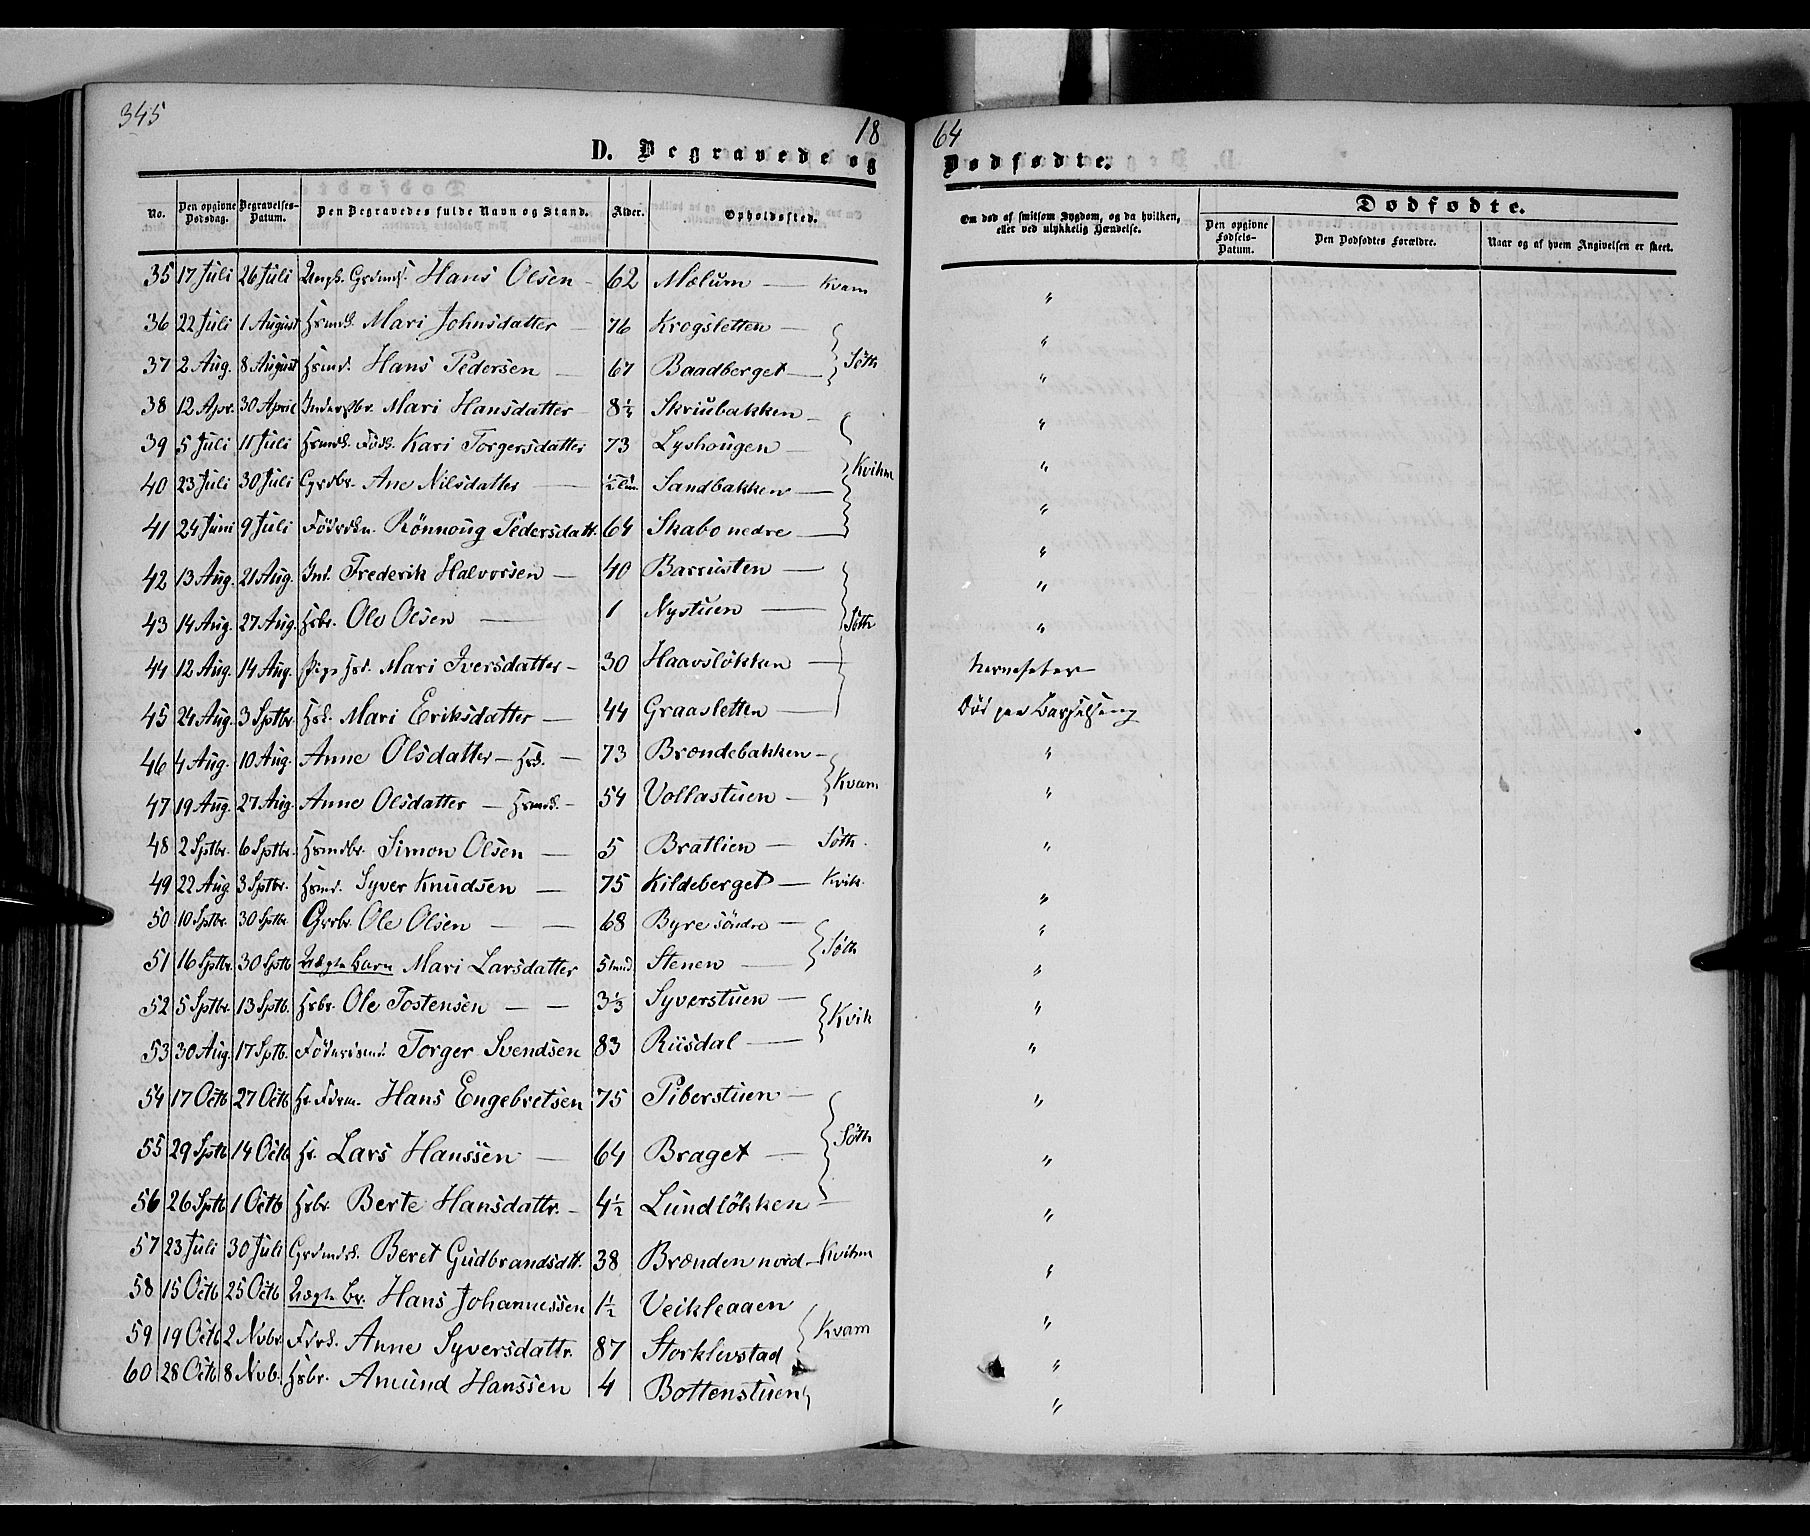 345
18 64
D. Begravede og Dødfødte.
No. Den opgivne Dødsdag. Begravelses-Datum. Den Begravedes fulde Navn og Stand. Alder. Opholdssted. Om død af smitsom Sygdom, og da hvilken, eller ved ulykkelig Hændelse. Dødfødte.
Den opgivne Fødsels-Datum. Den Dødfødtes Forældre. Naar og af hvem Angivelsen er skeet.
35 17 Juli 26 Juli Hans Olsen - 62 Mælum — Kvam "
36 22 Juli 1 August Hsmdk. Mari Johnsdatter - 76 Krogsletten — "
37 2 Aug. 8 August Hsmd. Hans Pedersen — 67 Baadberget — Söth "
38 12 Apr. 30 April Inderstbr. Mari Hansdatter - 8½ Skriubakken - "
39 5 Juli 11 Juli Hsmdk. Födk. Kari Torgersdatter 73 Lyshougen - "
40 23 Juli 30 Juli Grdbr. Ane Nilsdatter — Sandbakken — Kvihm "
41 24 Juni 9 Juli Rönnoug Pedersdatt. 64 Skabo nedre — "
42 13 Aug. 21 Aug. Ind. Frederik Halvorsen — 40 Barrusten — "
43 14 Aug. 27 Aug. Hsbr. Ole Olsen — 1 Nystuen — Söth "
44 12 Aug. 14 Aug. Mari Iversdatter - 30 Haavslökken —
45 24 Aug. 3 Sptbr. Hsk. Mari Eriksdatter — 44 Graasletten — Död paa Barselseng
46 4 Aug. 10 Aug. Anne Olsdatter — Hsk. — 73 Brændebakken - "
47 19 Aug. 27 Aug. Anne Olsdatter — Hsmdk. - 54 Vollastuen — Kvam "
48 2 Sptbr. 6 Sptbr. Hsmdbr. Simon Olsen — 5 Bratlien — Söth. "
49 22 Aug 3 Sptbr. Hsmd. Syver Knudsen — 75 Kildeberget — Kvik. "
50 10 Sptbr. 30 Sptbr Grbr. Ole Olsen — — 68 Byre söndre — "
51 16 Sptbr. 30 Sptb Uægte Barn Mari Larsdatter 5 Mnd. Stenen — Söth "
52 5 Sptbr. 13 Sptb. Hsbr. Ole Tostensen — — 3⅓ Syverstuen — "
53 30 Aug. 17 Sptb. Torger Svendsen 83 Riisdal — Kvik "
54 17 Octb 27 Octb Hans Engebretsen 75 Piberstuen — "
55 29 Sptb 14 Octb Hs. Lars Hanssen — 64 Braget — Söth "
56 26 Sptb 1 Octb Hsbr. Berte Hansdattr. - 4½ Lundlökken — "
57 23 Juli 30 Juli Grdmdk. Beret Gudbrandsdtt. 38 Brænden nord - Kvihm "
58 15 Octb 25 Octb Uægte br. Hans Johannessen 1½ Veikleaaen "
59 19 Octb 2 Nvbr. Anne Syversdattr. 87 Storklevstad Kvam "
60 28 Octb 8 Nvb. Hsbr. Amund Hanssen 4 Bottenstuen "